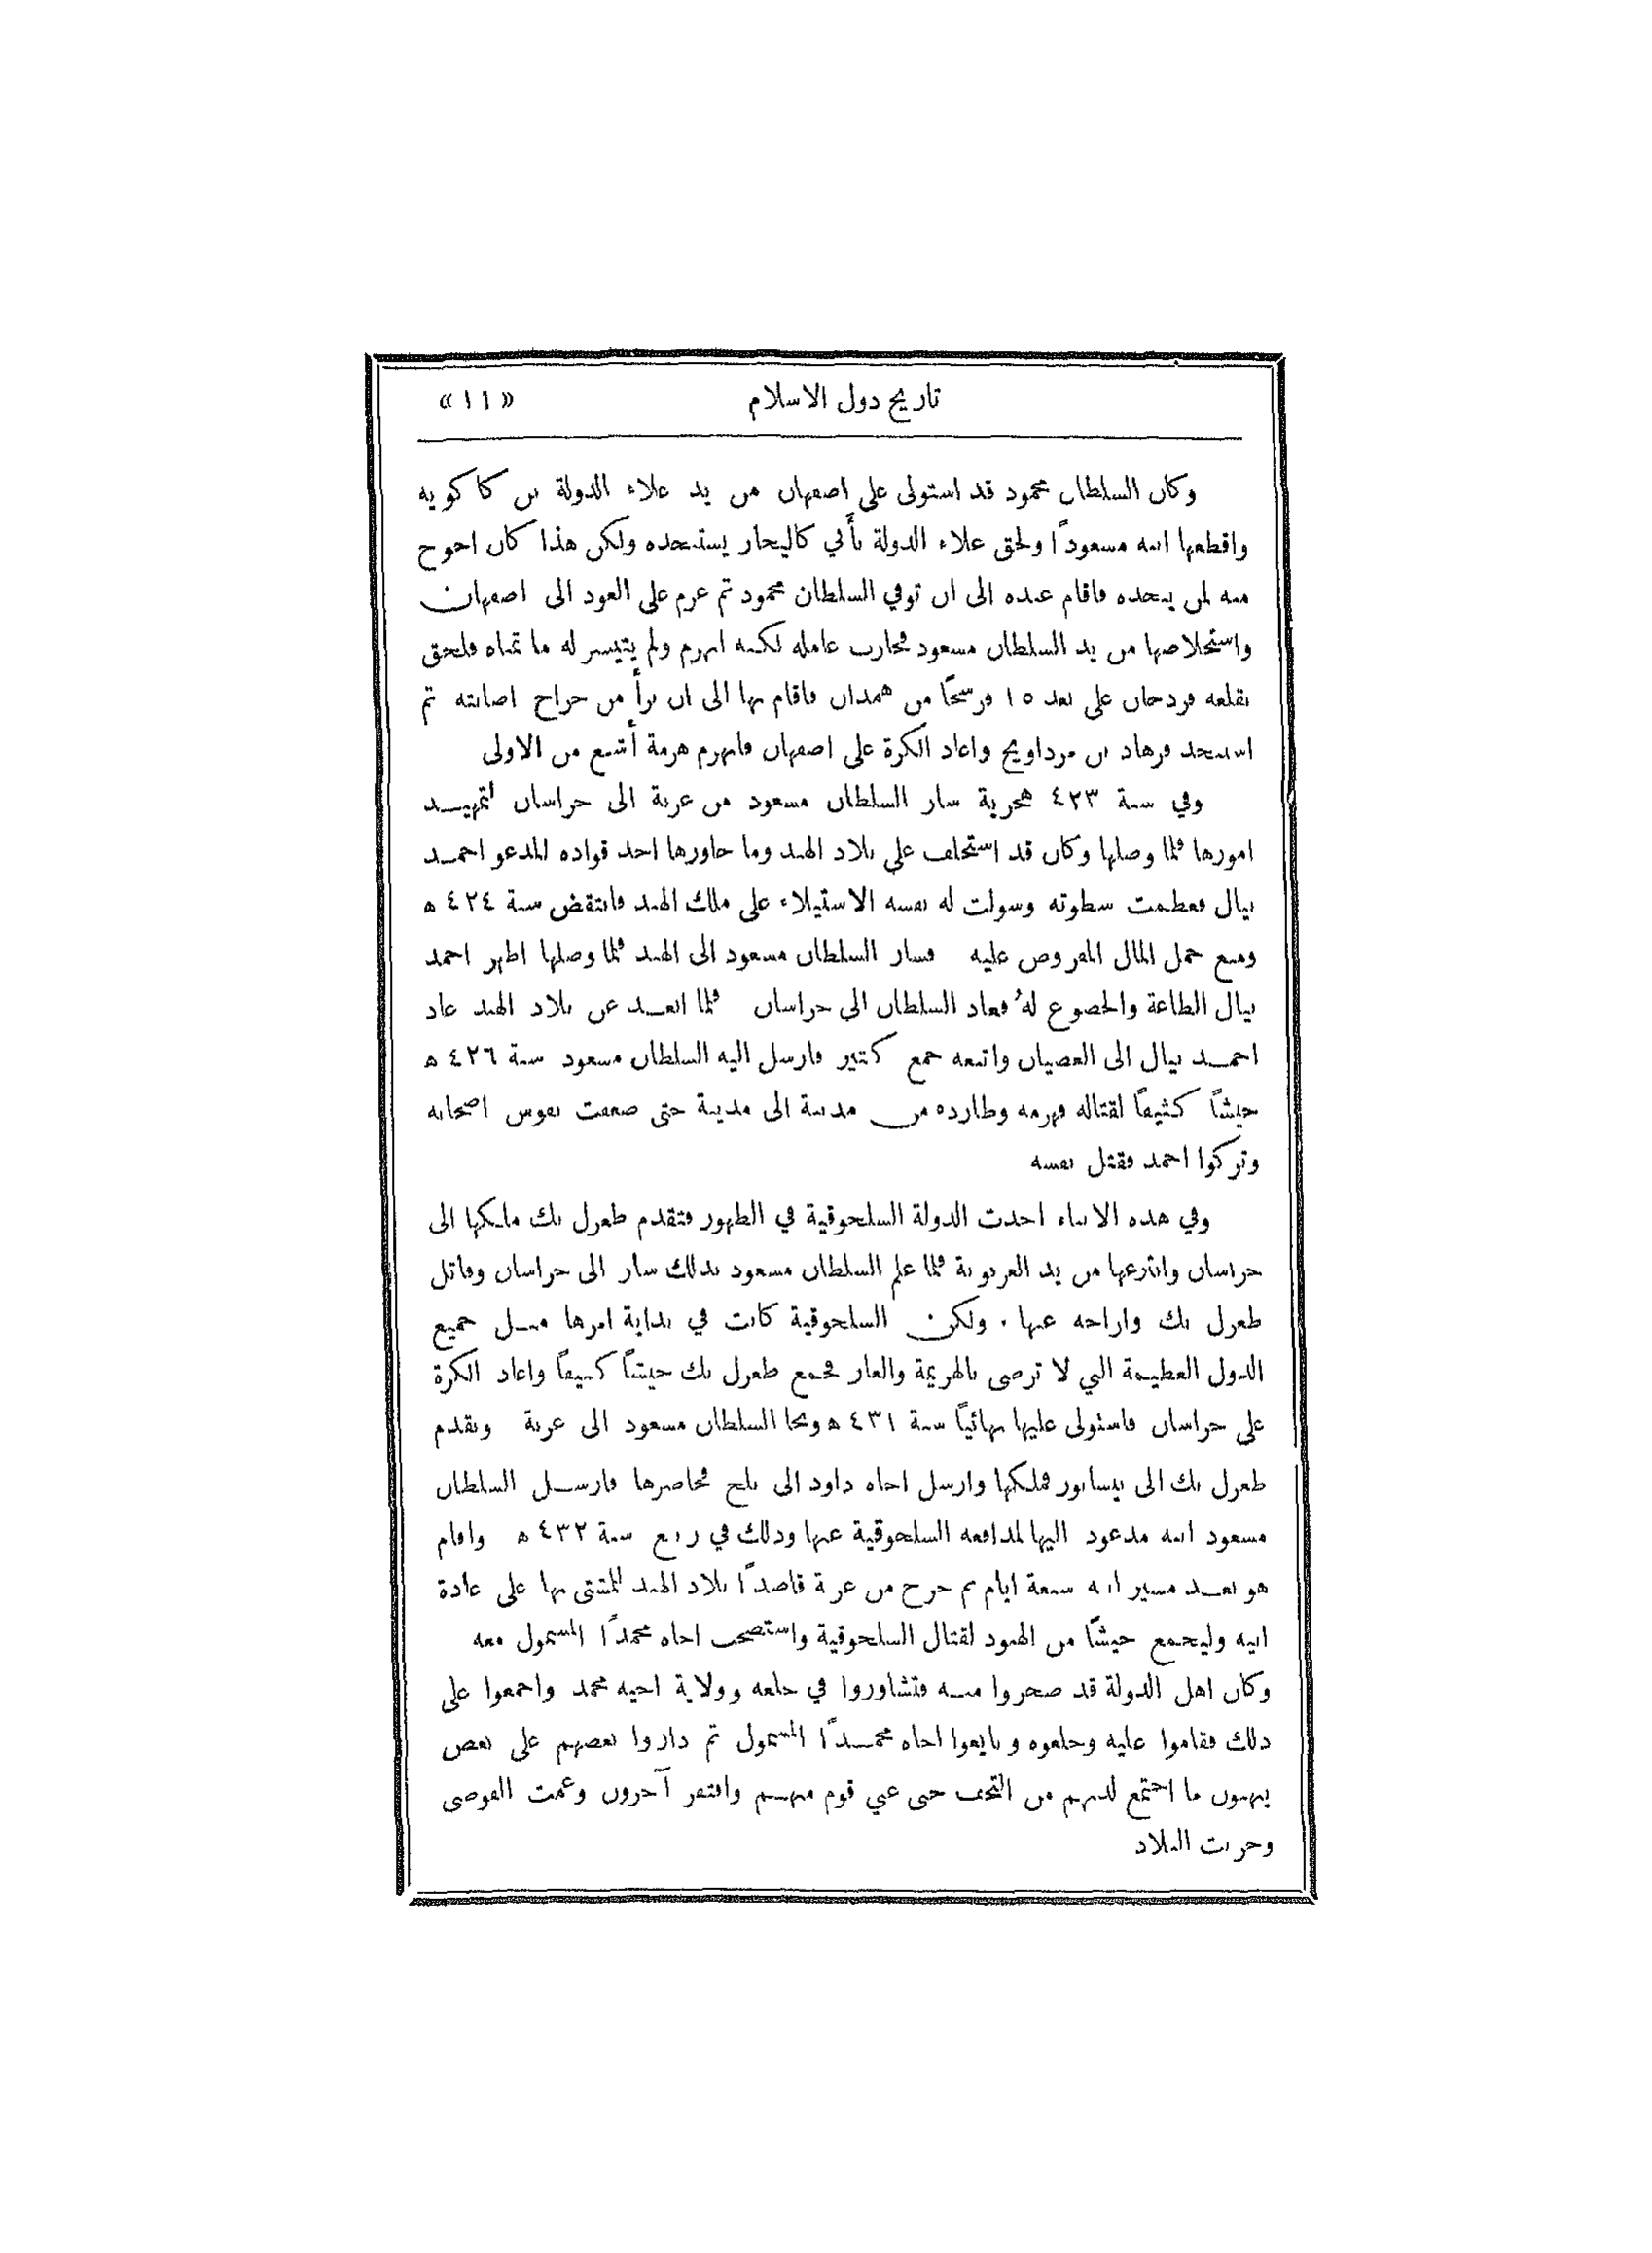 تاريخ دول الاسلام «١١»
وكان السلطان محمود قد استولى على اصفهان من يد علاء الدولة بن كاكويه
واقطعها ابنه مسعوداً ولحق علاء الدولة بأبي كاليجار يستنجده ولكن هذا كان احوج
منه لمن ينجده فاقام عنده الى ان توفي السلطان محمود ثم عزم على العود الى اصفهان
واستخلاصها من يد السلطان مسعود فحارب عامله لكنه انهزم ولم يتيسر له ما تمناه فلحق
بقلعه فردجان على بعد ١٥ فرسخًا من همدان فاقام بها الى ان برأ من جراح اصابته ثم
استنجد فرهاد بن مرداويج واعاد الكرة على اصفهان فانهزم هزمة أشنع من الاولى
وفي سنة ٤٢٣ هجرية سار السلطان مسعود من غزنة الى خراسان لتمهيد
امورها فلما وصلها وكان قد استخلف على بلاد الهند وما جاورها احد قواده المدعو احمد
نيال فعظمت سطوته وسولت له نفسه الاستيلاء على ملك الهند فانتقض سنة ٤٢٤ ه
ومنع حمل المال المفروض عليه فسار السلطان مسعود الى الهند فلما وصلها اظهر احمد
نيال الطاعة والخضوع لهُ فعاد السلطان الى خراسان فلما ابتعد عن بلاد الهند عاد
احمد نيال الى العصيان واتبعه جمع كثير فارسل اليه السلطان مسعود سنة ٤٢٦ ه
جيشاً كثيفاً لقتاله فهزمه وطارده من مدينة الى مدينة حتى ضعفت نفوس اصحابه
وتركوا احمد فقتل نفسه
وفي هذه الاثناء اخذت الدولة السلجوقية في الظهور فتقدم طغرل بك ملكها الى
خراسان وانتزعها من يد الغزنوية فلما علم السلطان مسعود بذلك سار الى خراسان وقاتل
طغرل بك وازاحه عنها . ولكن السلجوقية كانت في بداية امرها مثل جميع
الدول العظيمة التي لا ترضى بالهزيمة والعار فجمع طغرل بك جيشاً كثيفاً واعاد الكرة
على خراسان فاستولى عليها نهائيًا سنة ٤٣١ ه ونجا السلطان مسعود الى غزنة وتقدم
طغرل بك الى نيسابور فملكها وارسل اخاه داود الى بلخ فحاصرها فارسل السلطان
مسعود ابنه مدعود اليها لمدافعه السلجوقية عنها وذلك في ربيع سنة ٤٣٢ ه واقام
هو بعد مسير ابنه سبعة ايام ثم خرج من غزنة قاصداً بلاد الهند للمشتى بها على عادة
ابيه وليجمع جيشًا من الهنود لقتال السلجوقية واستصحب اخاه محمداً المسمول معه
وكان اهل الدولة قد ضجروا منه فتشاوروا في خلعه وولاية اخيه محمد واجمعوا على
ذلك فقاموا عليه وخلعوه وبايعوا اخاه محمداً المسمول ثم داروا بعضهم على بعض
ينهبون ما اجتمع لديهم من التحف حتى غني قوم منهم وافتقر آخرون وعمت الفوضى
وخربت البلاد